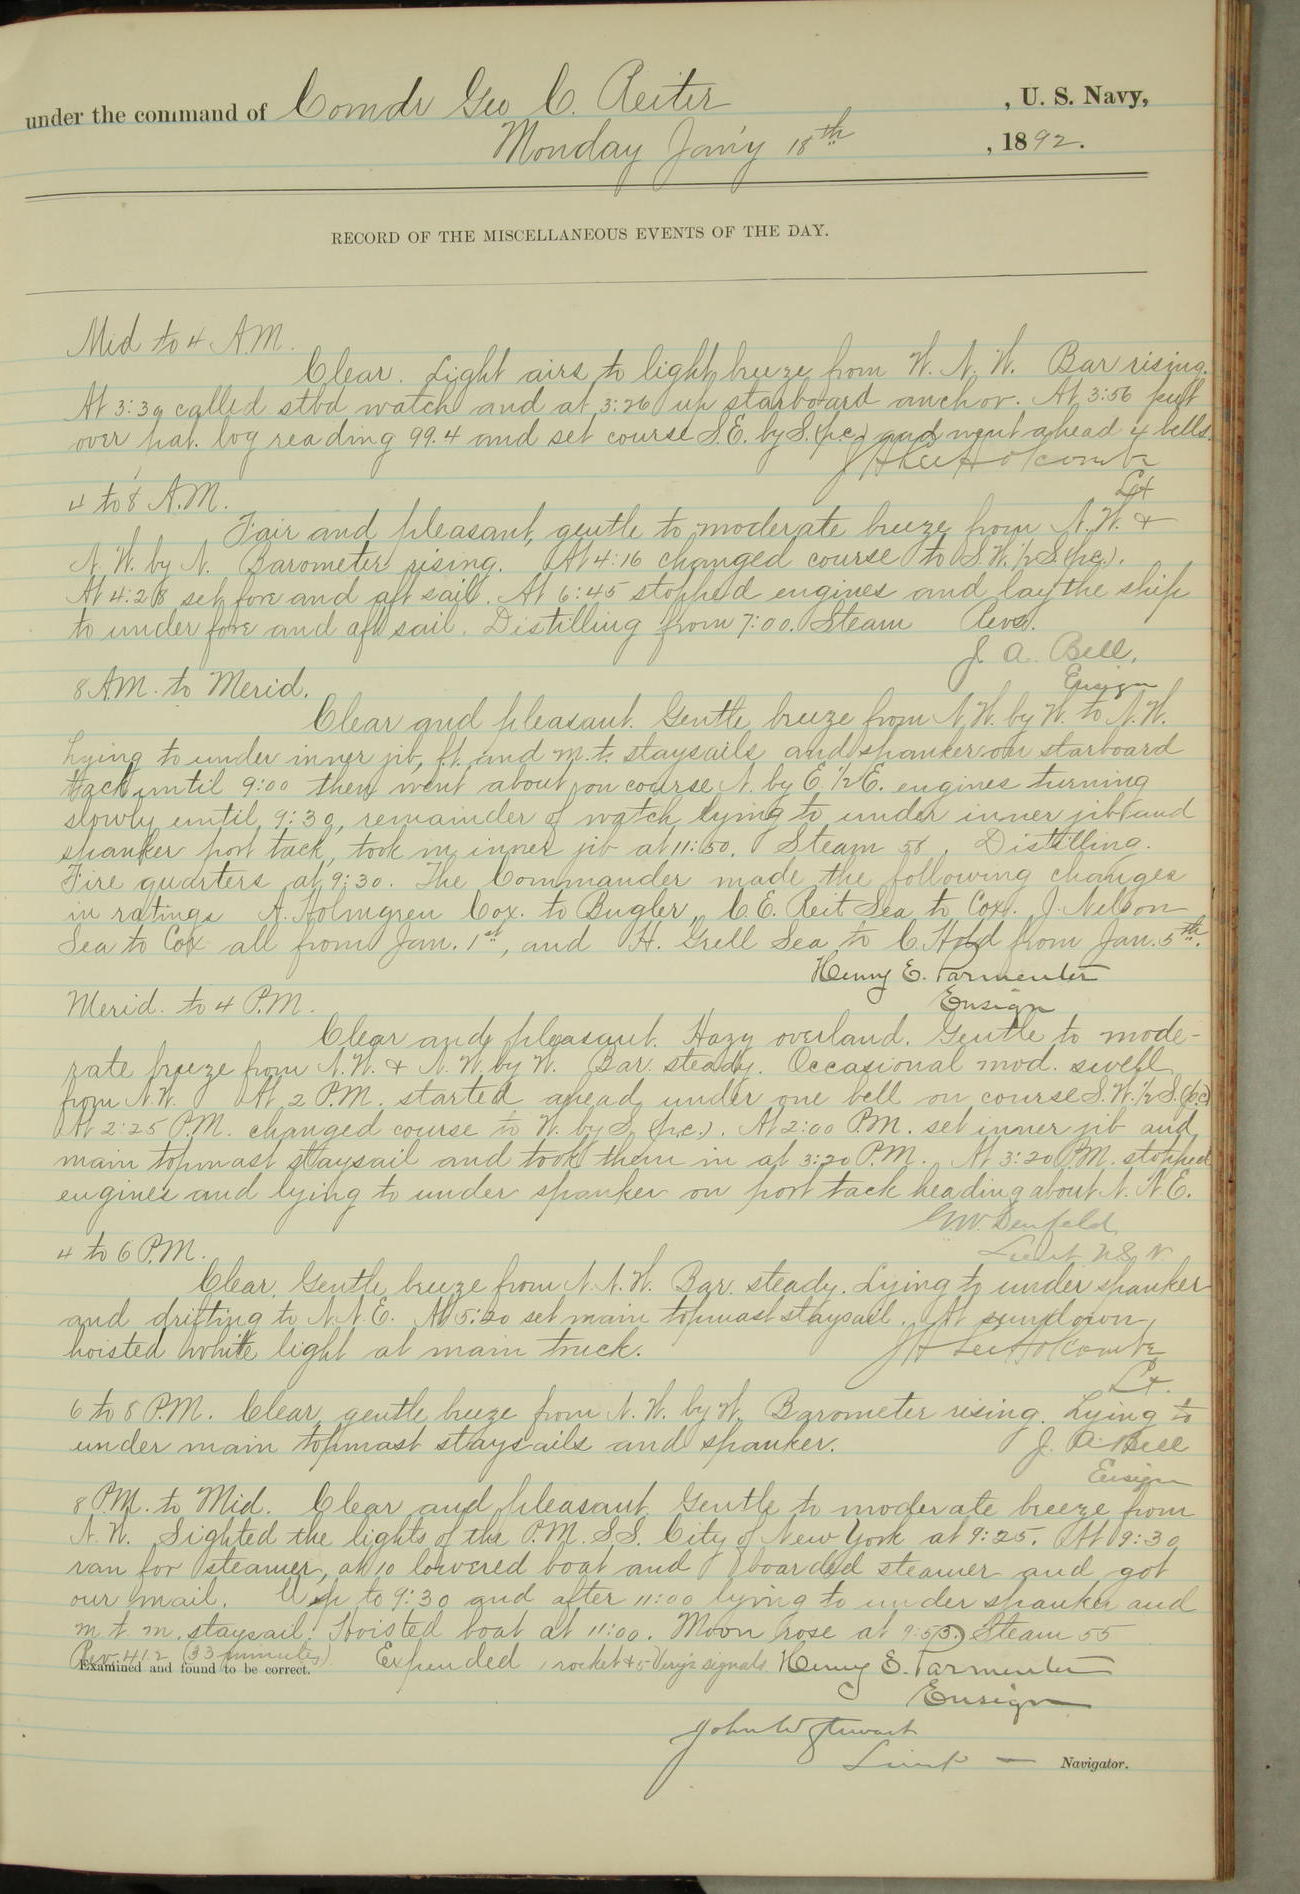 under the command of Comdr Geo C. Reiter , U. S. Navy,
Monday Jan'y 18th , 1892.
RECORD OF THE MISCELLANEOUS EVENTS OF THE DAY.
Mid to 4 A.M.
Clear. Light airs to light breeze from W. N. W. Bar rising.
At 3:30 called stbd watch and at 3:26 up starboard anchor. At 3:56 put
over pat. log reading 99.4 and set course S.E. by S. (p.c.) and went ahead 4 bells.
Lt
4 to 8 A.M.
Fair and pleasant, gentle to moderate breeze from N.W. &
N. W. by N. Barometer rising. At 4:16 changed course to S.W. 1/2 S. (p.c.).
At 4:28 set fore and aft sail. At 6:45 stopped engines and lay the ship
to under fore and aft sail. Distilling from 7:00. Steam Revs.
J. A. Bell,
Ensign
8 A.M. to Merid.
Clear and pleasant. Gentle breeze from N.W. by W. to N.W.
Lying to under inner jib, ft. and m.t. staysails and spanker on starboard
tack until 9:00 then went about on course N. by E. 1/2 E. engines turning
slowly until 9:30, remainder of watch lying to under inner jib and
spanker port tack, took in inner jib at 11:50. Steam 58. Distilling.
Fire quarters at 9:30. The Commander made the following changes
in ratings A. Holmgren Cox. to Bugler, C. E. Reit Sea to Cox. J. Nelson
Sea to Cox all from Jan. 1st, and H. Grell Sea to C. Hold from Jan. 5th.
Henny E. Parmenter
Ensign
Merid. to 4 P.M.
Clear and pleasant. Hazy overland. Gentle to mode-
rate breeze from N.W. & N.W. by W. Bar. steady. Occasional mod. swell
from N.W. At 2 P.M. started ahead under one bell on course S.W. 1/2 S. (p.c.)
At 2:25 P.M. changed course to W. by S. (p.c.). At 2:00 P.M. set inner jib and
main topmast staysail and took them in at 3:20 P.M. At 3:20 P.M. stopped
engines and lying to under spanker on port tack heading about N. N. E.
G.W. Denfeld
Lieut U.S.N.
4 to 6 P.M.
Clear. Gentle breeze from N. N. W. Bar. steady. Lying to under spanker
and drifting to N. N. E. At 5:20 set main topmast staysail. At sundown
hoisted white light at main truck.
Lt.
6 to 8 P.M. Clear, gentle breeze from N. W. by W. Barometer rising. Lying to
under main topmast staysails and spanker.
J. A. Bell
Ensign
8 P.M. to Mid. Clear and pleasant. Gentle to moderate breeze from
N. W. Sighted the lights of the P.M. S.S. City of New York at 9:25. At 9:30
ran for steamer, at 10 lowered boat and boarded steamer and got
our mail. Up to 9:30 and after 11:00 lying to under spanker and
m. t. m. staysail. Hoisted boat at 11:00. Moon rose at 9:53. Steam 55
Rev. 41.2 (33 minutes). Expended 1 rocket & 5 Very's signals Henny E. Parmenter
Examined and found to be correct.
Ensign
John W Stewart
Lieut — Navigator.